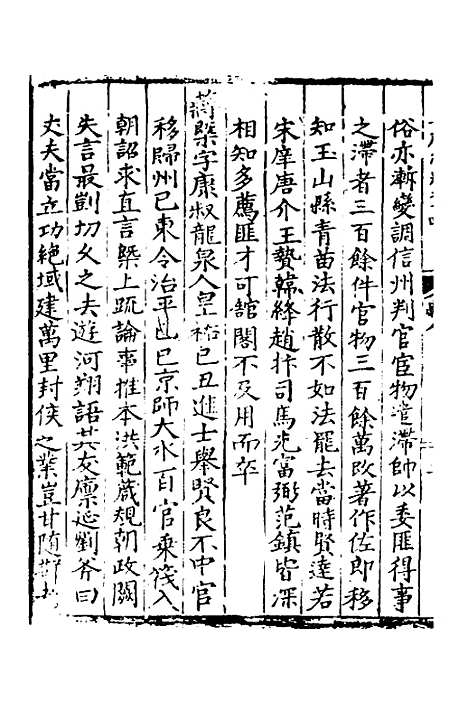 俗亦漸變調信州判官宦物遣滯帥以委匪得事
之滯者三百餘件官物三百餘萬改著作佐郎移
知玉山縣青苗法行散不如法罷去當時賢達若
宋庠唐介王贄韓絳趙抃司馬光富弼范鎮皆深
相知多薦匪才可舘閣不及用而卒
蔣槩字康叔龍泉人皇祐已丑進士舉賢良不中官
移歸州巴東令治平乙巳京師大水百官乘筏入
朝詔求直言槩上疏論事推本洪範箴規朝政闕
失言最剴切久之夫遊河朔語其友廖延劉斧曰
丈夫當立功絶域建萬里封侯之業豈甘隨